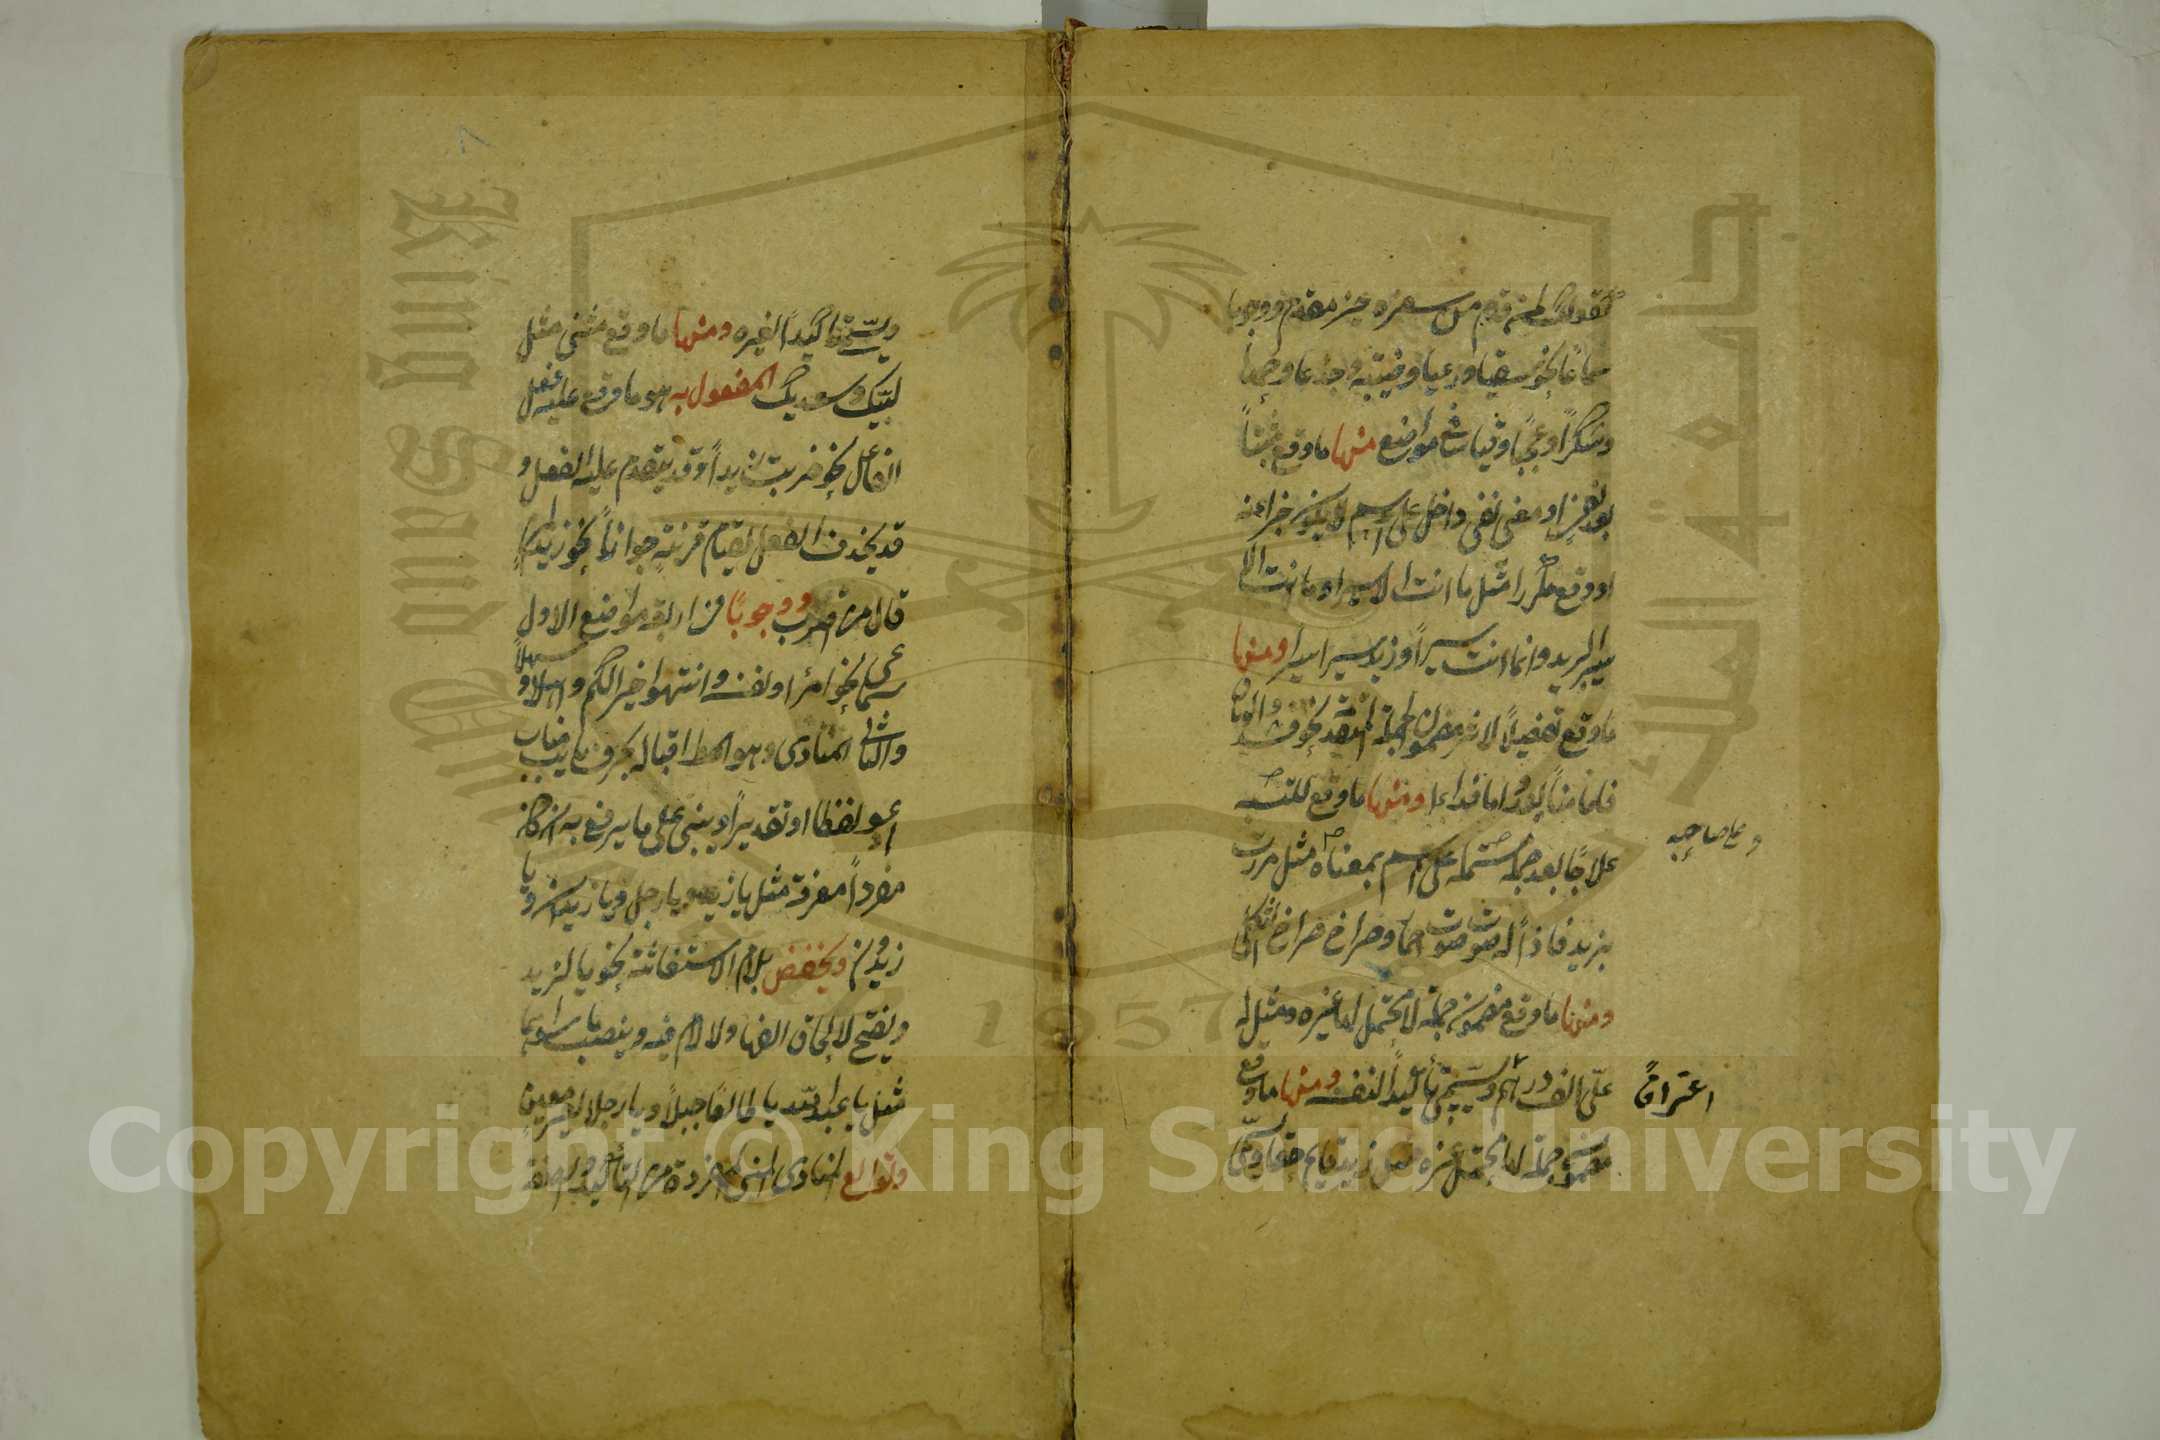 كقولك لمن قدم من سفره خير مقدم ووجوبا
سماعا نحو سقيا ورعيا وخيبة وجدعا وحمدا
وشكرا وعجبا وقياسا في مواضع منها ما وقع مثبتا
بعد نفي او معنى نفي داخل على اسم لا يكون خبرا عنه
او وقع مكررا مثل ما انت الا سيرا وما انت الا
سير البريد وانما انت سيرا وزيد سيرا سيرا ومنها
ما وقع تفصيلا لاثر مضمون جملة متقدمة نحو فشدوا الوثاق
فاما منا بعد واما فداء ومنها ما وقع للتشبيه
علاجا بعد جملة مشتملة على اسم بمعناه مثل مررت
وعلى صاحبه
بزيد فاذا له صوت صوت حمار وصراخ صراخ الثكلى
ومنها ما وقع مضمون جملة لا محتمل لها غيره ومثل له
على الف درهم ويسمى تأكيدا لنفسه ومنها ما وقع
اعترافا
مضمون جملة لها محتمل غيره مثل زيد قايم حقا
ويسمى تاكيدا لغيره ومنها ما وقع مثنى مثل
لبيك وسعديك المفعول به هو ما وقع عليه فعل
الفاعل نحو ضربت زيدا وقد يتقدم على الفعل و
قد يحذف الفعل لقيام قرينة جوازا نحو زيدا لمن
قال من اضرب ووجوبا في اربعة مواضع الاول
سماعي نحو امرأ ونفسه وانتهوا خيرا لكم واهلا وسهلا
والثاني المنادى وهو المط اقباله بحرف نايب مناب
ادعو لفظا او تقديرا ويبنى على ما يرفع به ان كان
مفردا معرفة مثل يا زيد ويا رجل ويا زيدان ويا
زيدون ويخفض بلام الاستغاثة نحو يا لزيد
ويفتح لالحاق الفها ولا لام فيه وينصب ما سواهما
مثل يا عبد الله يا طالعا جبلا ويا رجلا لغير معين
وتوابع المنادى المبنى المفردة من التأكيد والصفة
٨
جامعة الملك سعود
King Saud University
1957
Copyright © King Saud University